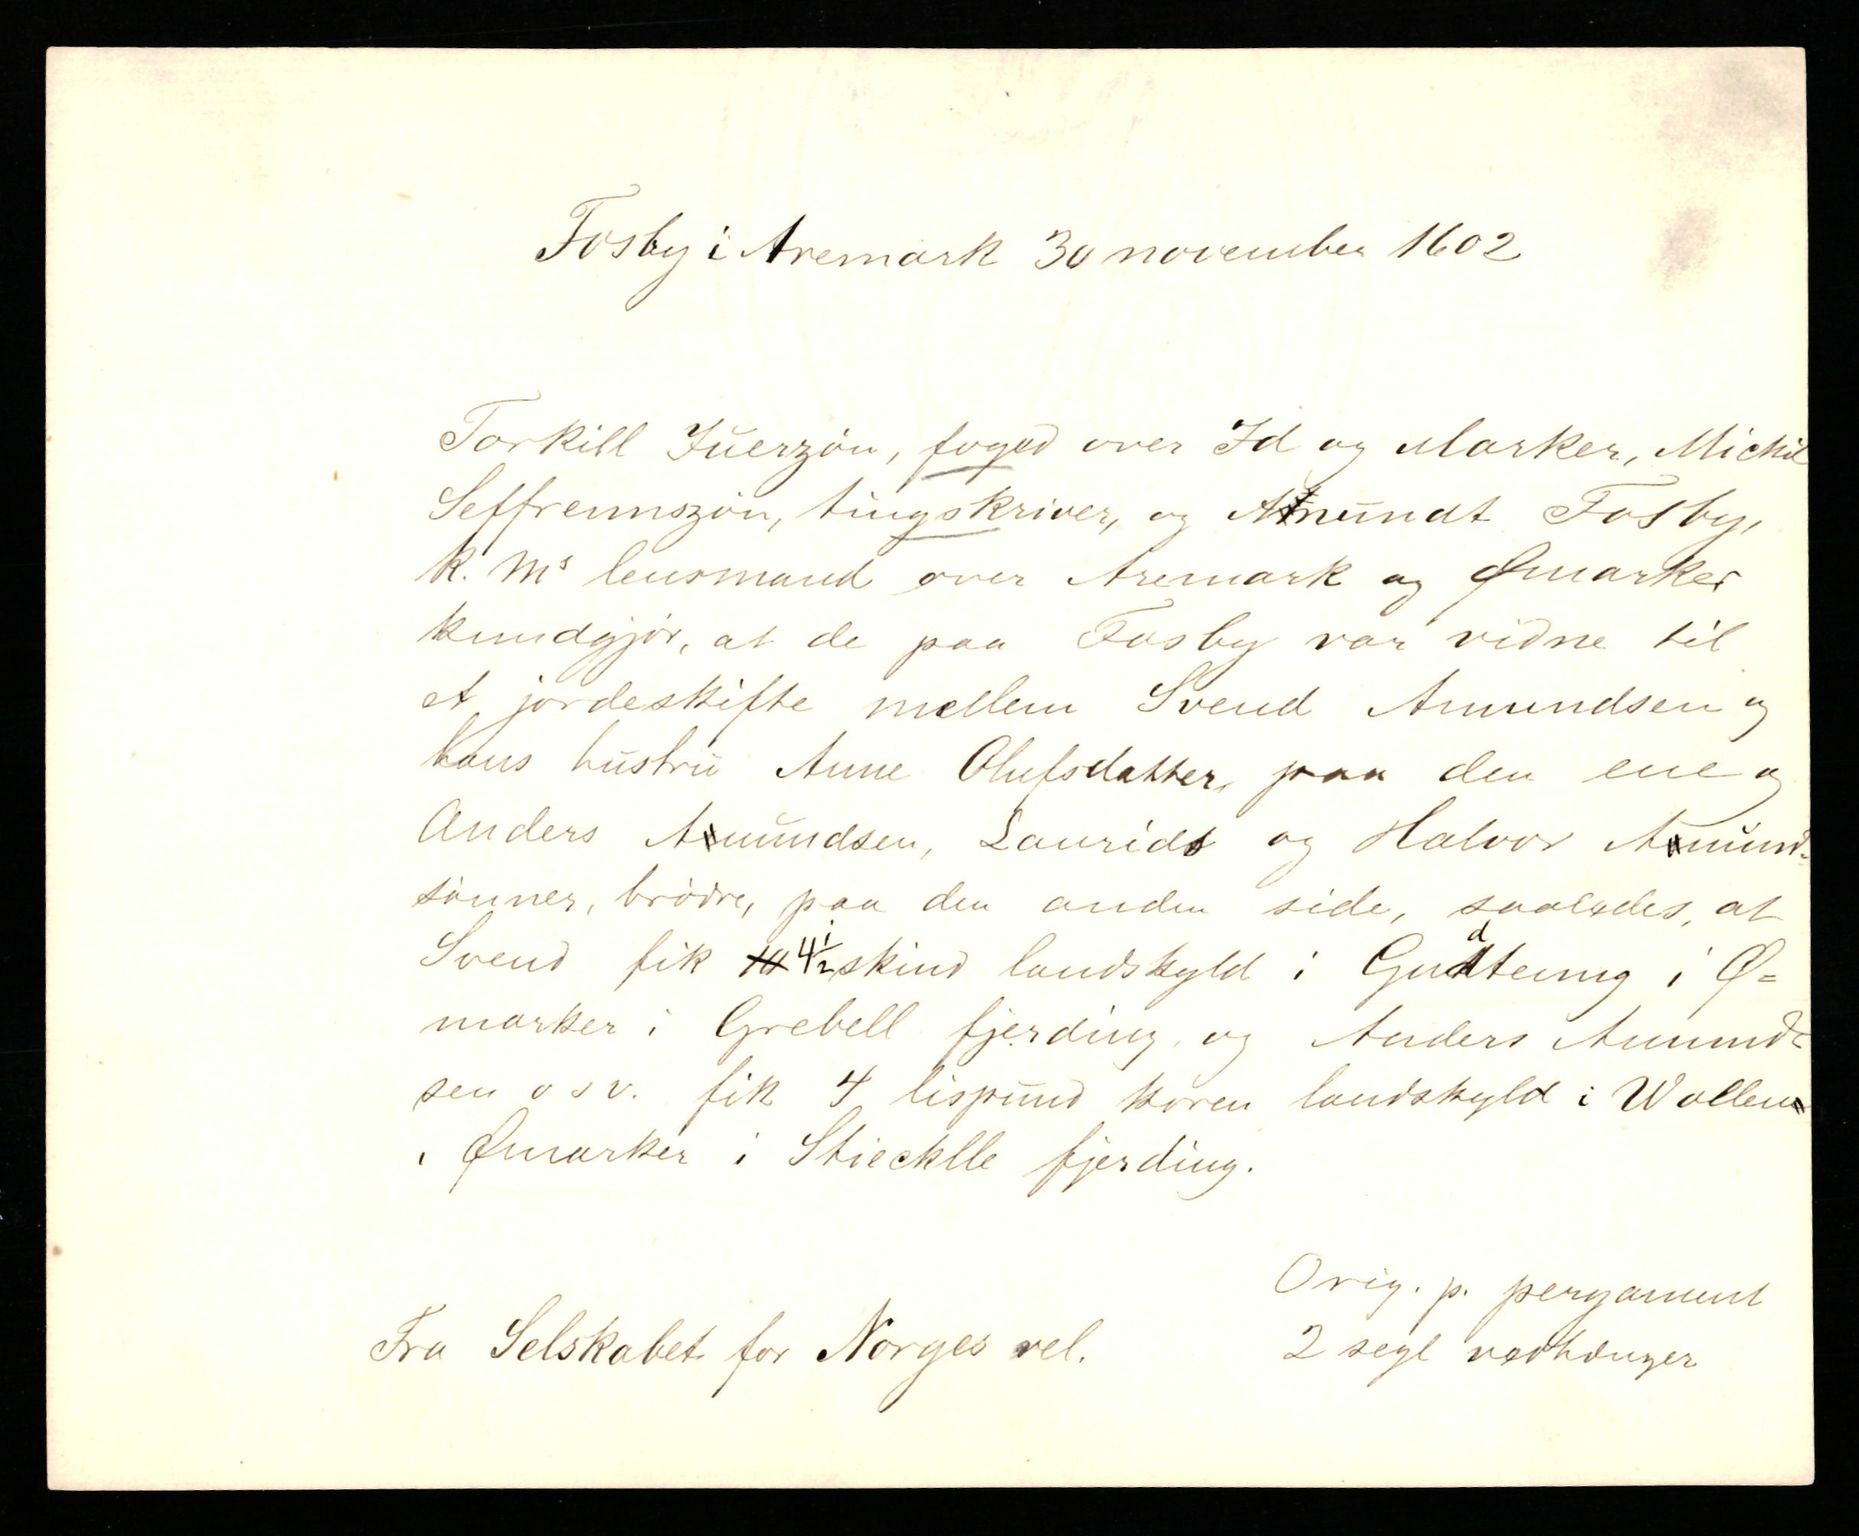 Fosby i Aremark 30 november 1602
Torkill Juerzön, foged over Id og Marker, Michil
Seffrennszön, tingskriver, og Amundt Fosby,
k. Ms lensmand over Aremark og Ømarker
kundgjör, at de paa Fosby var vidne til
et jordeskifte mellem Svend Amundsen og
hans hustru Anne Olufsdatter, paa den ene og
Anders Amundsen, Laurids og Halvor Amund-
sönner, brödre, paa den anden side, saaledes, at
Svend fik 4½ skind landskyld i Gudteung i Ø=
marker i Grebell fjerding, og Anders Amund-
sen osv. fik 4 lispund koren landskyld i Wollen
i Ømarker i Stiecklle fjerding.
Orig. p. pergament
Fra Selskabet for Norges vel.
2 segl vedhænger